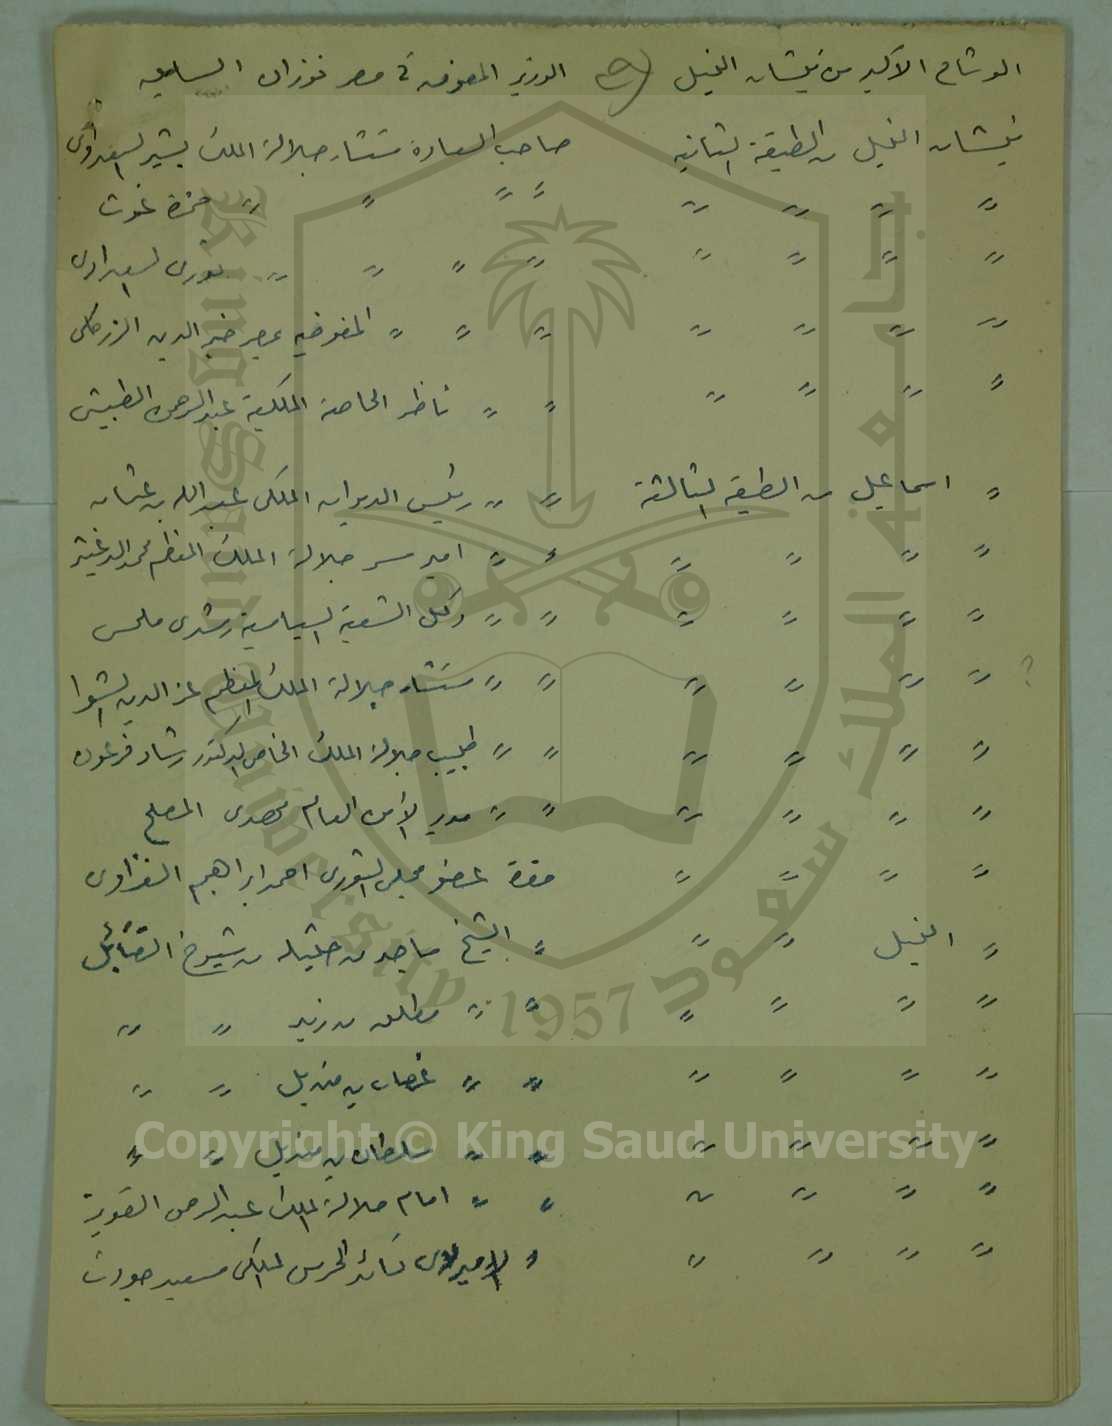 الوشاح الأكبر من نيشان النيل (٥) الوزير المفوض في مصر فوزان السابق
نيشان النيل من الطبقة الثانية صاحب السعادة مستشار جلالة الملك بشير السعداوي
〃 〃 〃 〃 〃 〃 〃 〃 حمزة غوث
〃 〃 〃 〃 〃 〃 〃 〃 نوري السعداوي
〃 〃 〃 〃 〃 〃 〃 المفوضيه بمصر خير الدين الزركلي
〃 〃 〃 〃 〃 〃 ناظر الخاصة الملكية عبدالرحمن الطبيشي
〃 اسماعيل من الطبقة الثالثة 〃 〃 رئيس الديوان الملكي عبدالله بن عثمان
〃 〃 〃 〃 〃 〃 امير سر جلالة الملك المعظم محمد الدغيثر
〃 〃 〃 〃 〃 〃 وكيل الشعبة السياسية رشدي ملحس
؟ 〃 〃 〃 〃 〃 〃 مستشار جلالة الملك المعظم عز الدين الشوا
〃 〃 〃 〃 〃 〃 طبيب جلالة الملك الخاص الدكتور رشاد فرعون
〃 〃 〃 〃 〃 〃 مدير الأمن العام مهدي المصلح
〃 〃 〃 〃 حضرة عضو مجلس الشورى احمد ابراهيم الغزاوي
〃 النيل 〃 〃 〃 الشيخ ماجد بن خثيله من شيوخ القبائل
〃 〃 〃 〃 〃 〃 مطلق بن زيد 〃 〃
〃 〃 〃 〃 〃 〃 بن منديل 〃 〃
〃 〃 〃 〃 〃 〃 سلطان بن منديل 〃 〃
〃 〃 〃 〃 〃 〃 امام جلالة الملك عبدالرحمن القويز
〃 〃 〃 〃 〃 الاميرالاي قائد الحرس الملكي سعيد جودت
جامعة الملك سعود
King Saud University
1957
Copyright © King Saud University